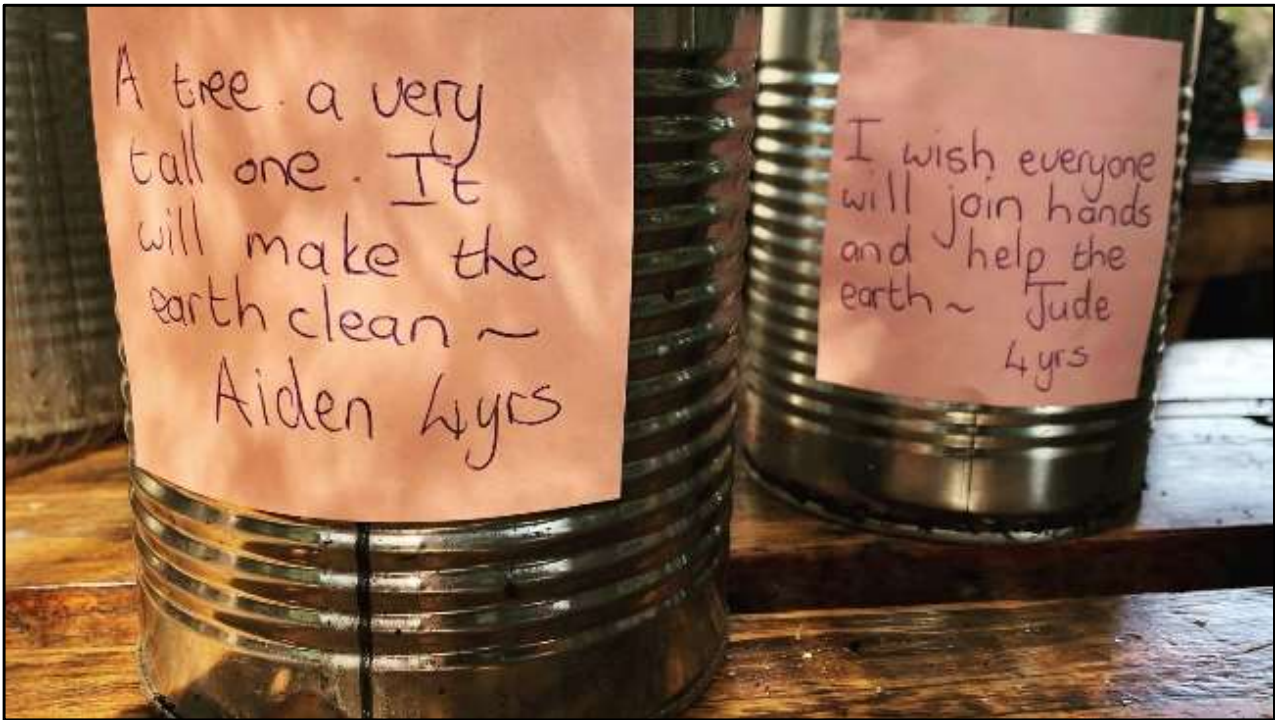 A tree. a very
tall one. It
will make the
earth clean ~
Aiden 4yrs
I wish everyone
will join hands
and help the
earth ~ Jude
4 yrs